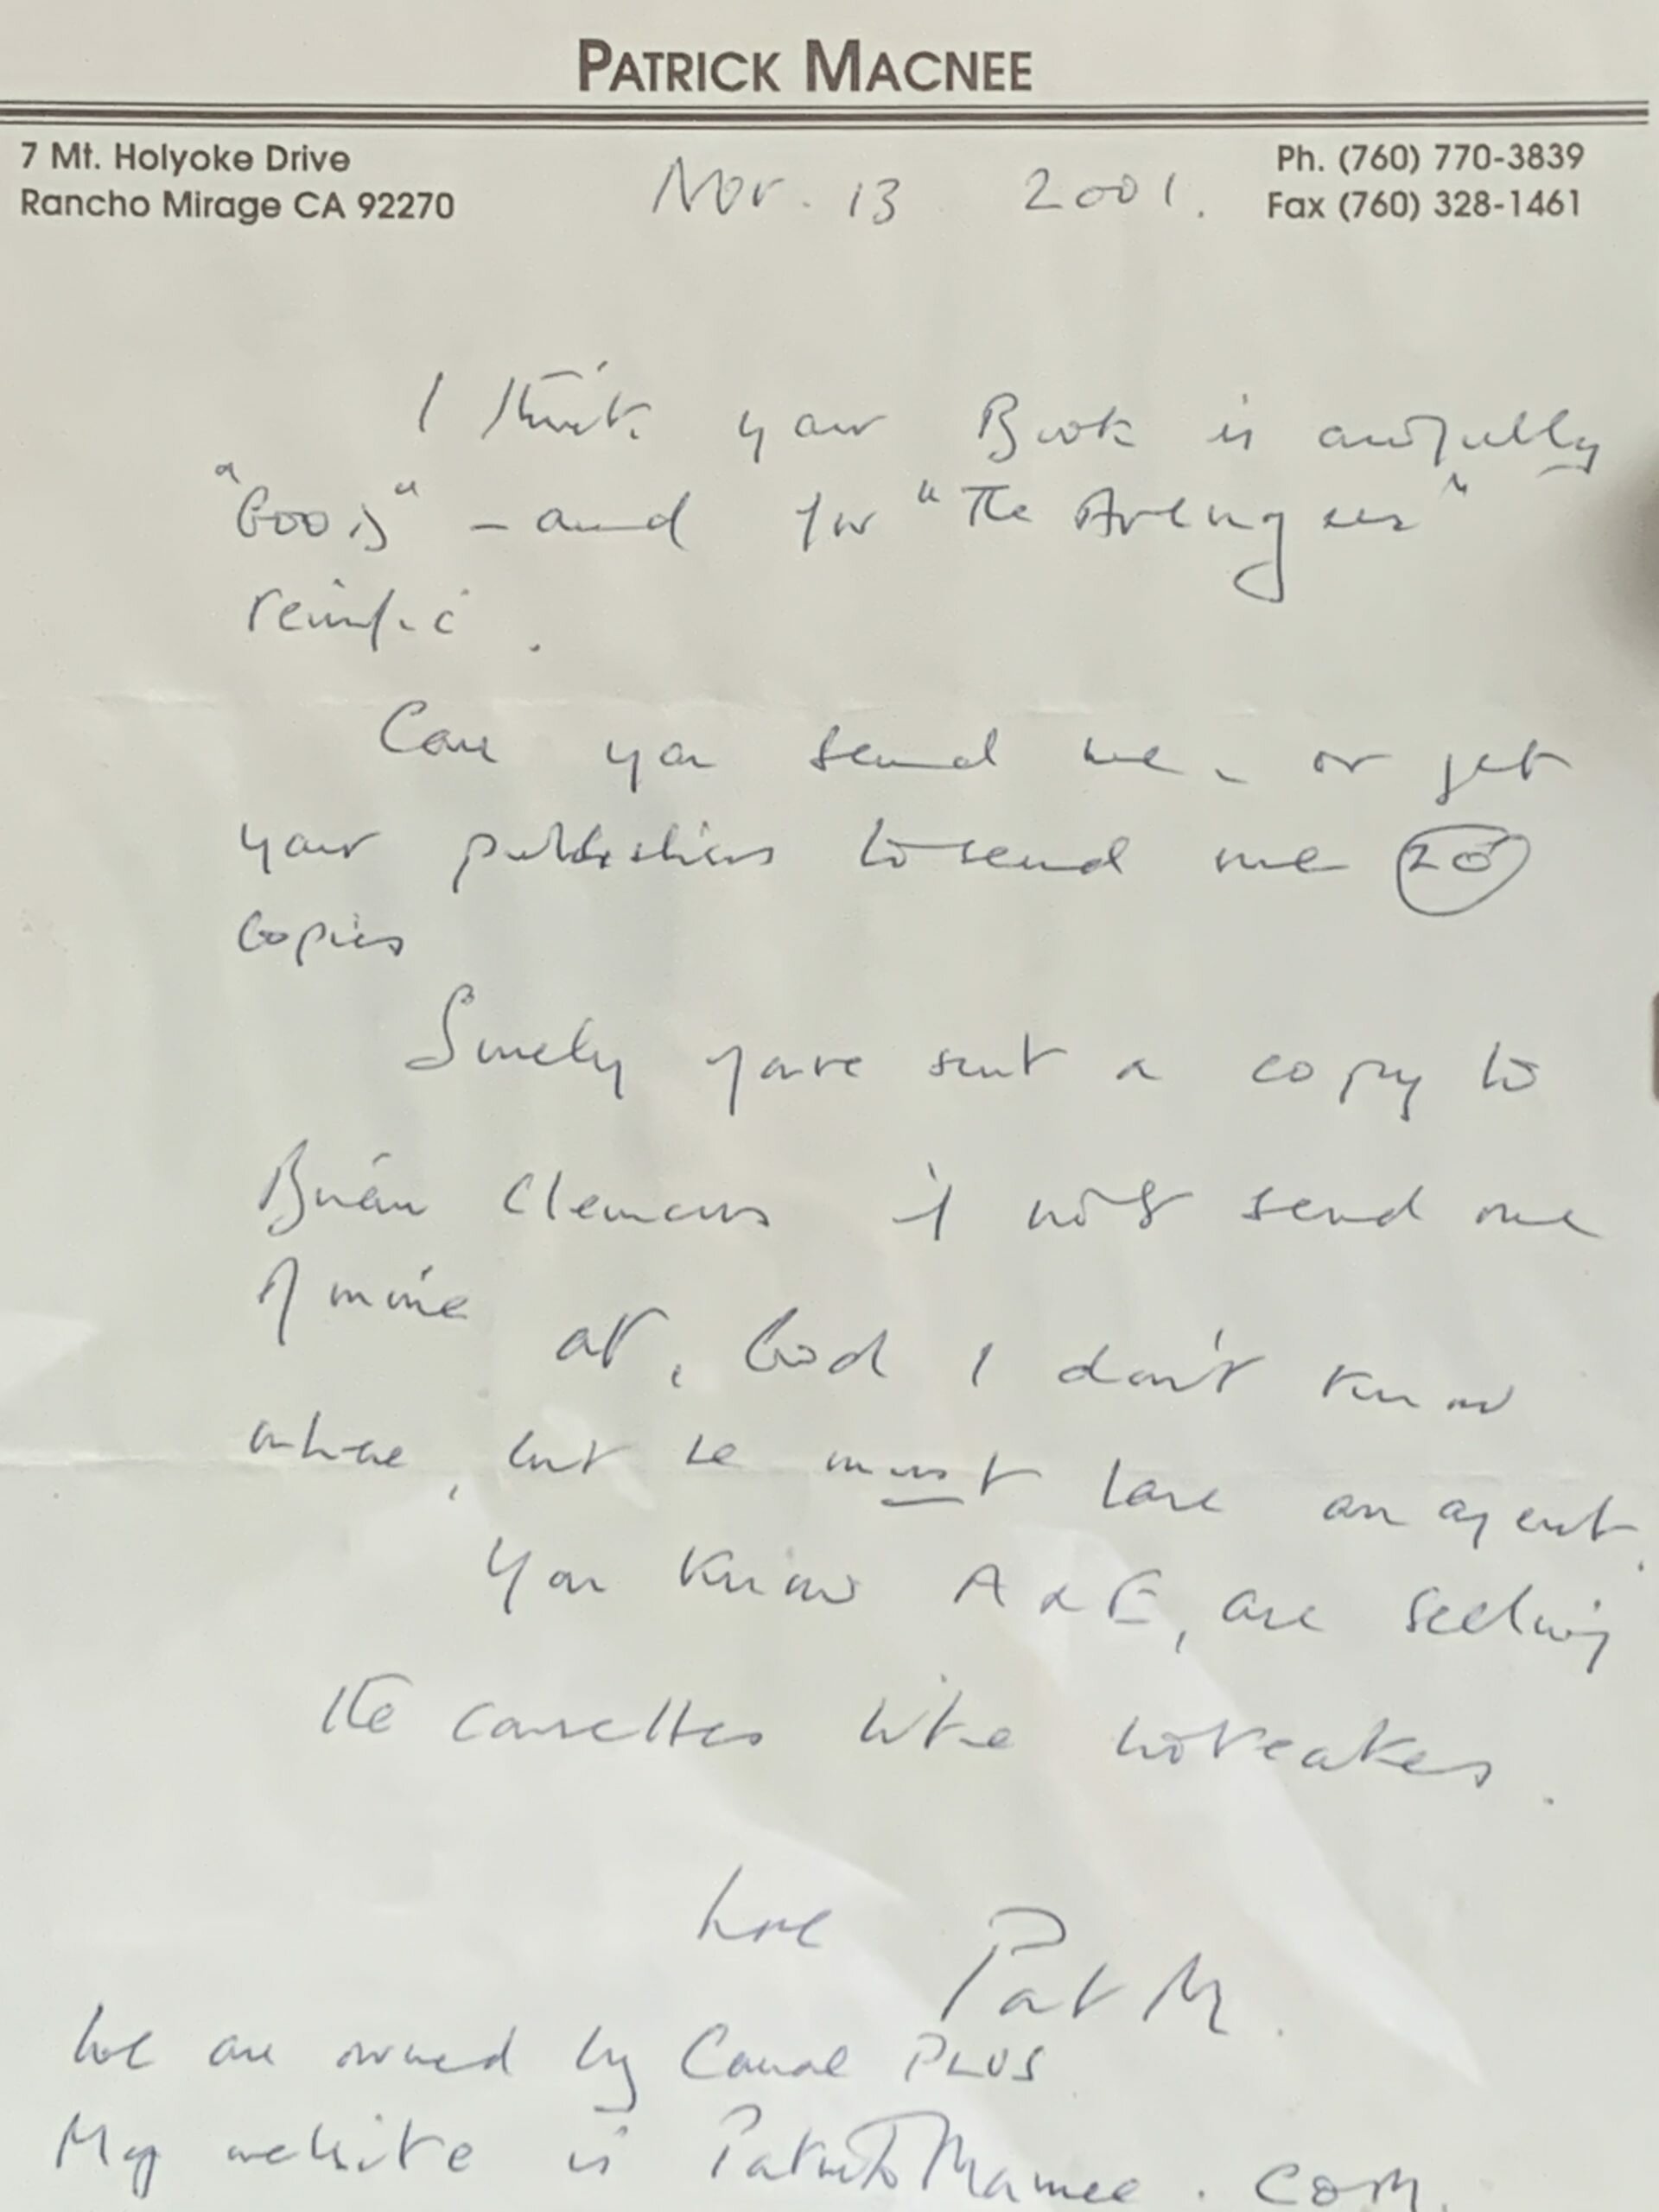 PATRICK MACNEE
7 Mt. Holyoke Drive
Rancho Mirage CA 92270
Nov. 13 2001.
Ph. (760) 770-3839
Fax (760) 328-1461
I think your Book is awfully
"Good" – and for "The Avengers"
terrific.
Can you send me, or get
your publishers to send me 20
copies
Surely you've sent a copy to
Brian Clemens if not send one
of mine at, God I don't know
where, but he must have an agent.
You know A & E, are selling
the cassettes like hotcakes.
Love
Pat M.
We are owned by Canal PLUS
My website is PatrickMacnee.com.